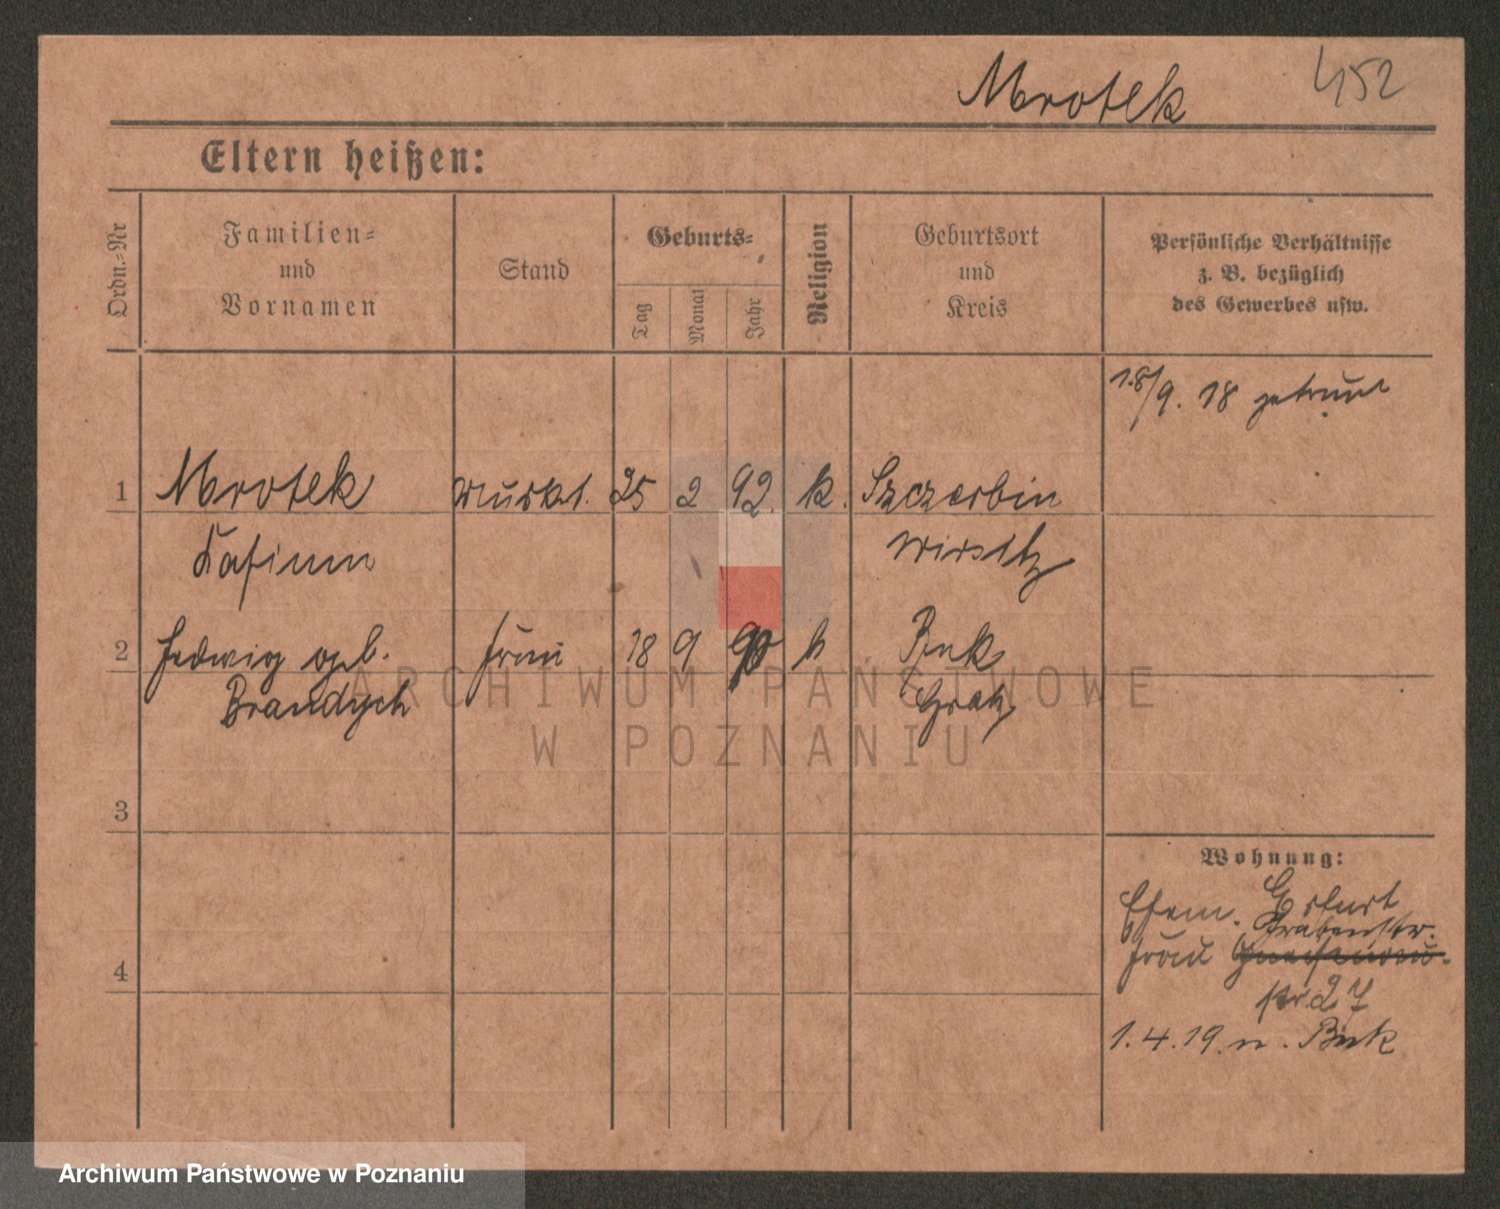 Mrotek 452
Eltern heißen:
Ordn.=Nr
Familien=
und
Vornamen
Stand
Geburts=
Tag
Monat
Jahr
Religion
Geburtsort
und
Kreis
Persönliche Verhältnisse
z. B. bezüglich
des Gewerbes usw.
18/9. 18 getraut
1 Mrotek 25 2 92 k. Szczerbin
Kasimir Wirsitz
2 Hedwig geb. Frau 18 9 90 k Buk
Brandych Grätz
3
4
Wohnung:
Ehem. Erfurt
Grabenstr.
Frau
str. 27
1.4.19. n. Buk
ARCHIWUM PAŃSTWOWE
W POZNANIU
Archiwum Państwowe w Poznaniu